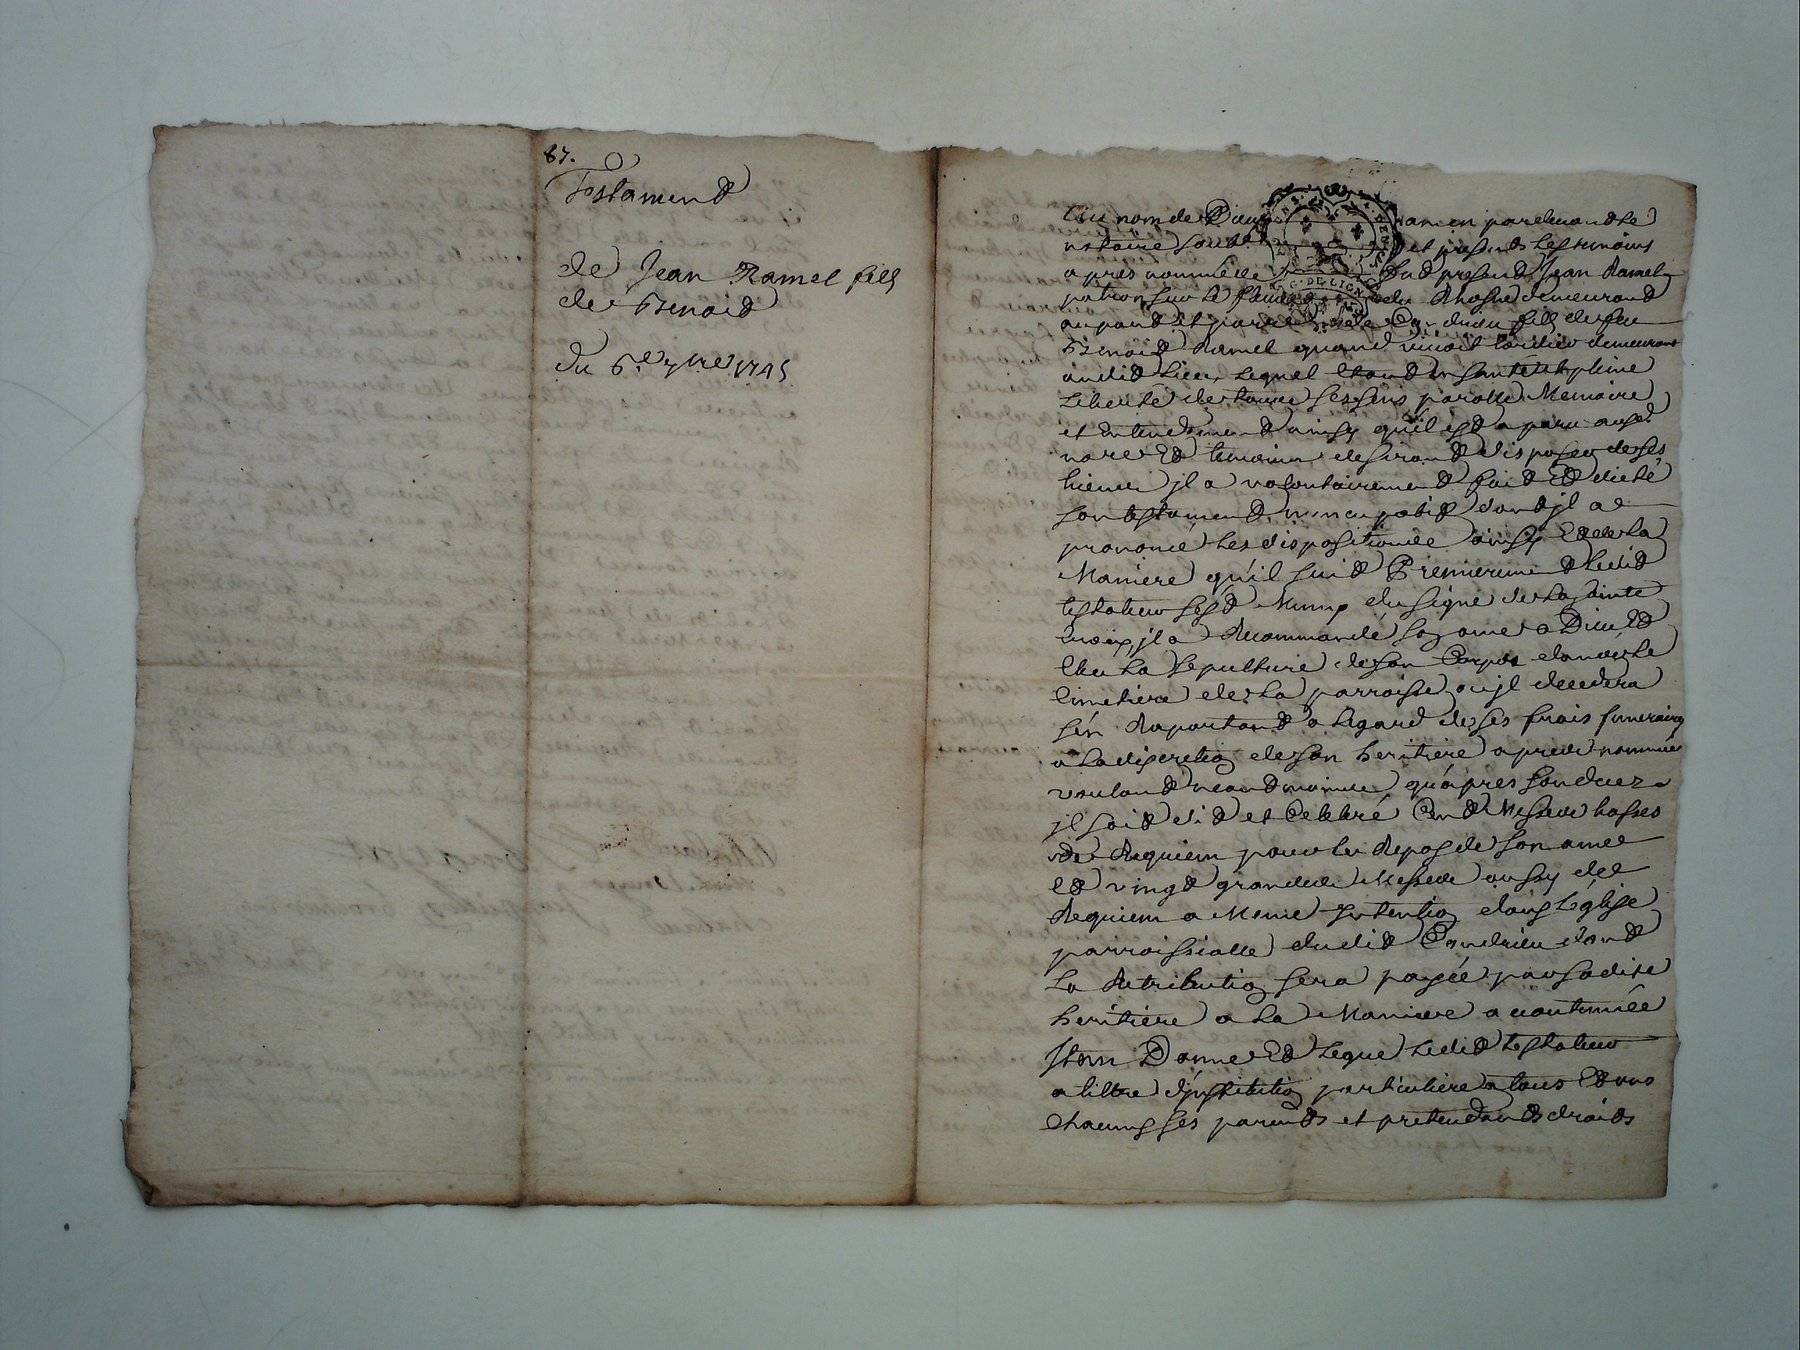 87.
Testament
de Jean Ramel fils
de Benoid
du 6.e 7bre 1745
Au nom de Dieu amen pardevand le
notaire sous et presends les temoins
apres nommés fud presend Jean Ramel
patron sur le fleuve du Rhosne demeurand
au pord et parroisse de Condrieu fils de feu
Benoid Ramel quand vivoit voiturier demeurant
audit lieu, lequel étand en santé et pleine
liberté de tous ses sens parolle Memoire
et entendemend ainsy qu'il est aparu aud.
nore et temoins desirand disposer de ses
biens jl a volontairemend faid Ed dicté
son testamend noncupatif dond jl a
prononcé les dispositions ainsy Ed de la
Maniere qu'il suid Premieremend ledid
testateur s'est Muny du signe de la Sainte
Croix, jl a Recommandé son ame a Dieu, Ed
Elu la sepulture de son Corps dans le
Cimetiere de la parroisse ou jl decedera
s'en Raportand a l'egard de ses frais funeraires
a la discretion de son heritiere apres nommée
vouland neandmoins qu'apres son decez
jl soid did et Celebré Cend Messes basses
de Requiem pour le Repos de son ame
Ed vingd grandes Messes aussy de
Requiem a Meme Jntention dans l'église
parroissialle dudid Condrieu dond
la Retribution sera payée par sadite
heritiere a la Maniere accoutumée
Jtem Donne Ed legue ledid testateur
a tiltre d'jnstitution particuliere a tous Ed uns
Chacuns ses parends et pretendands droids